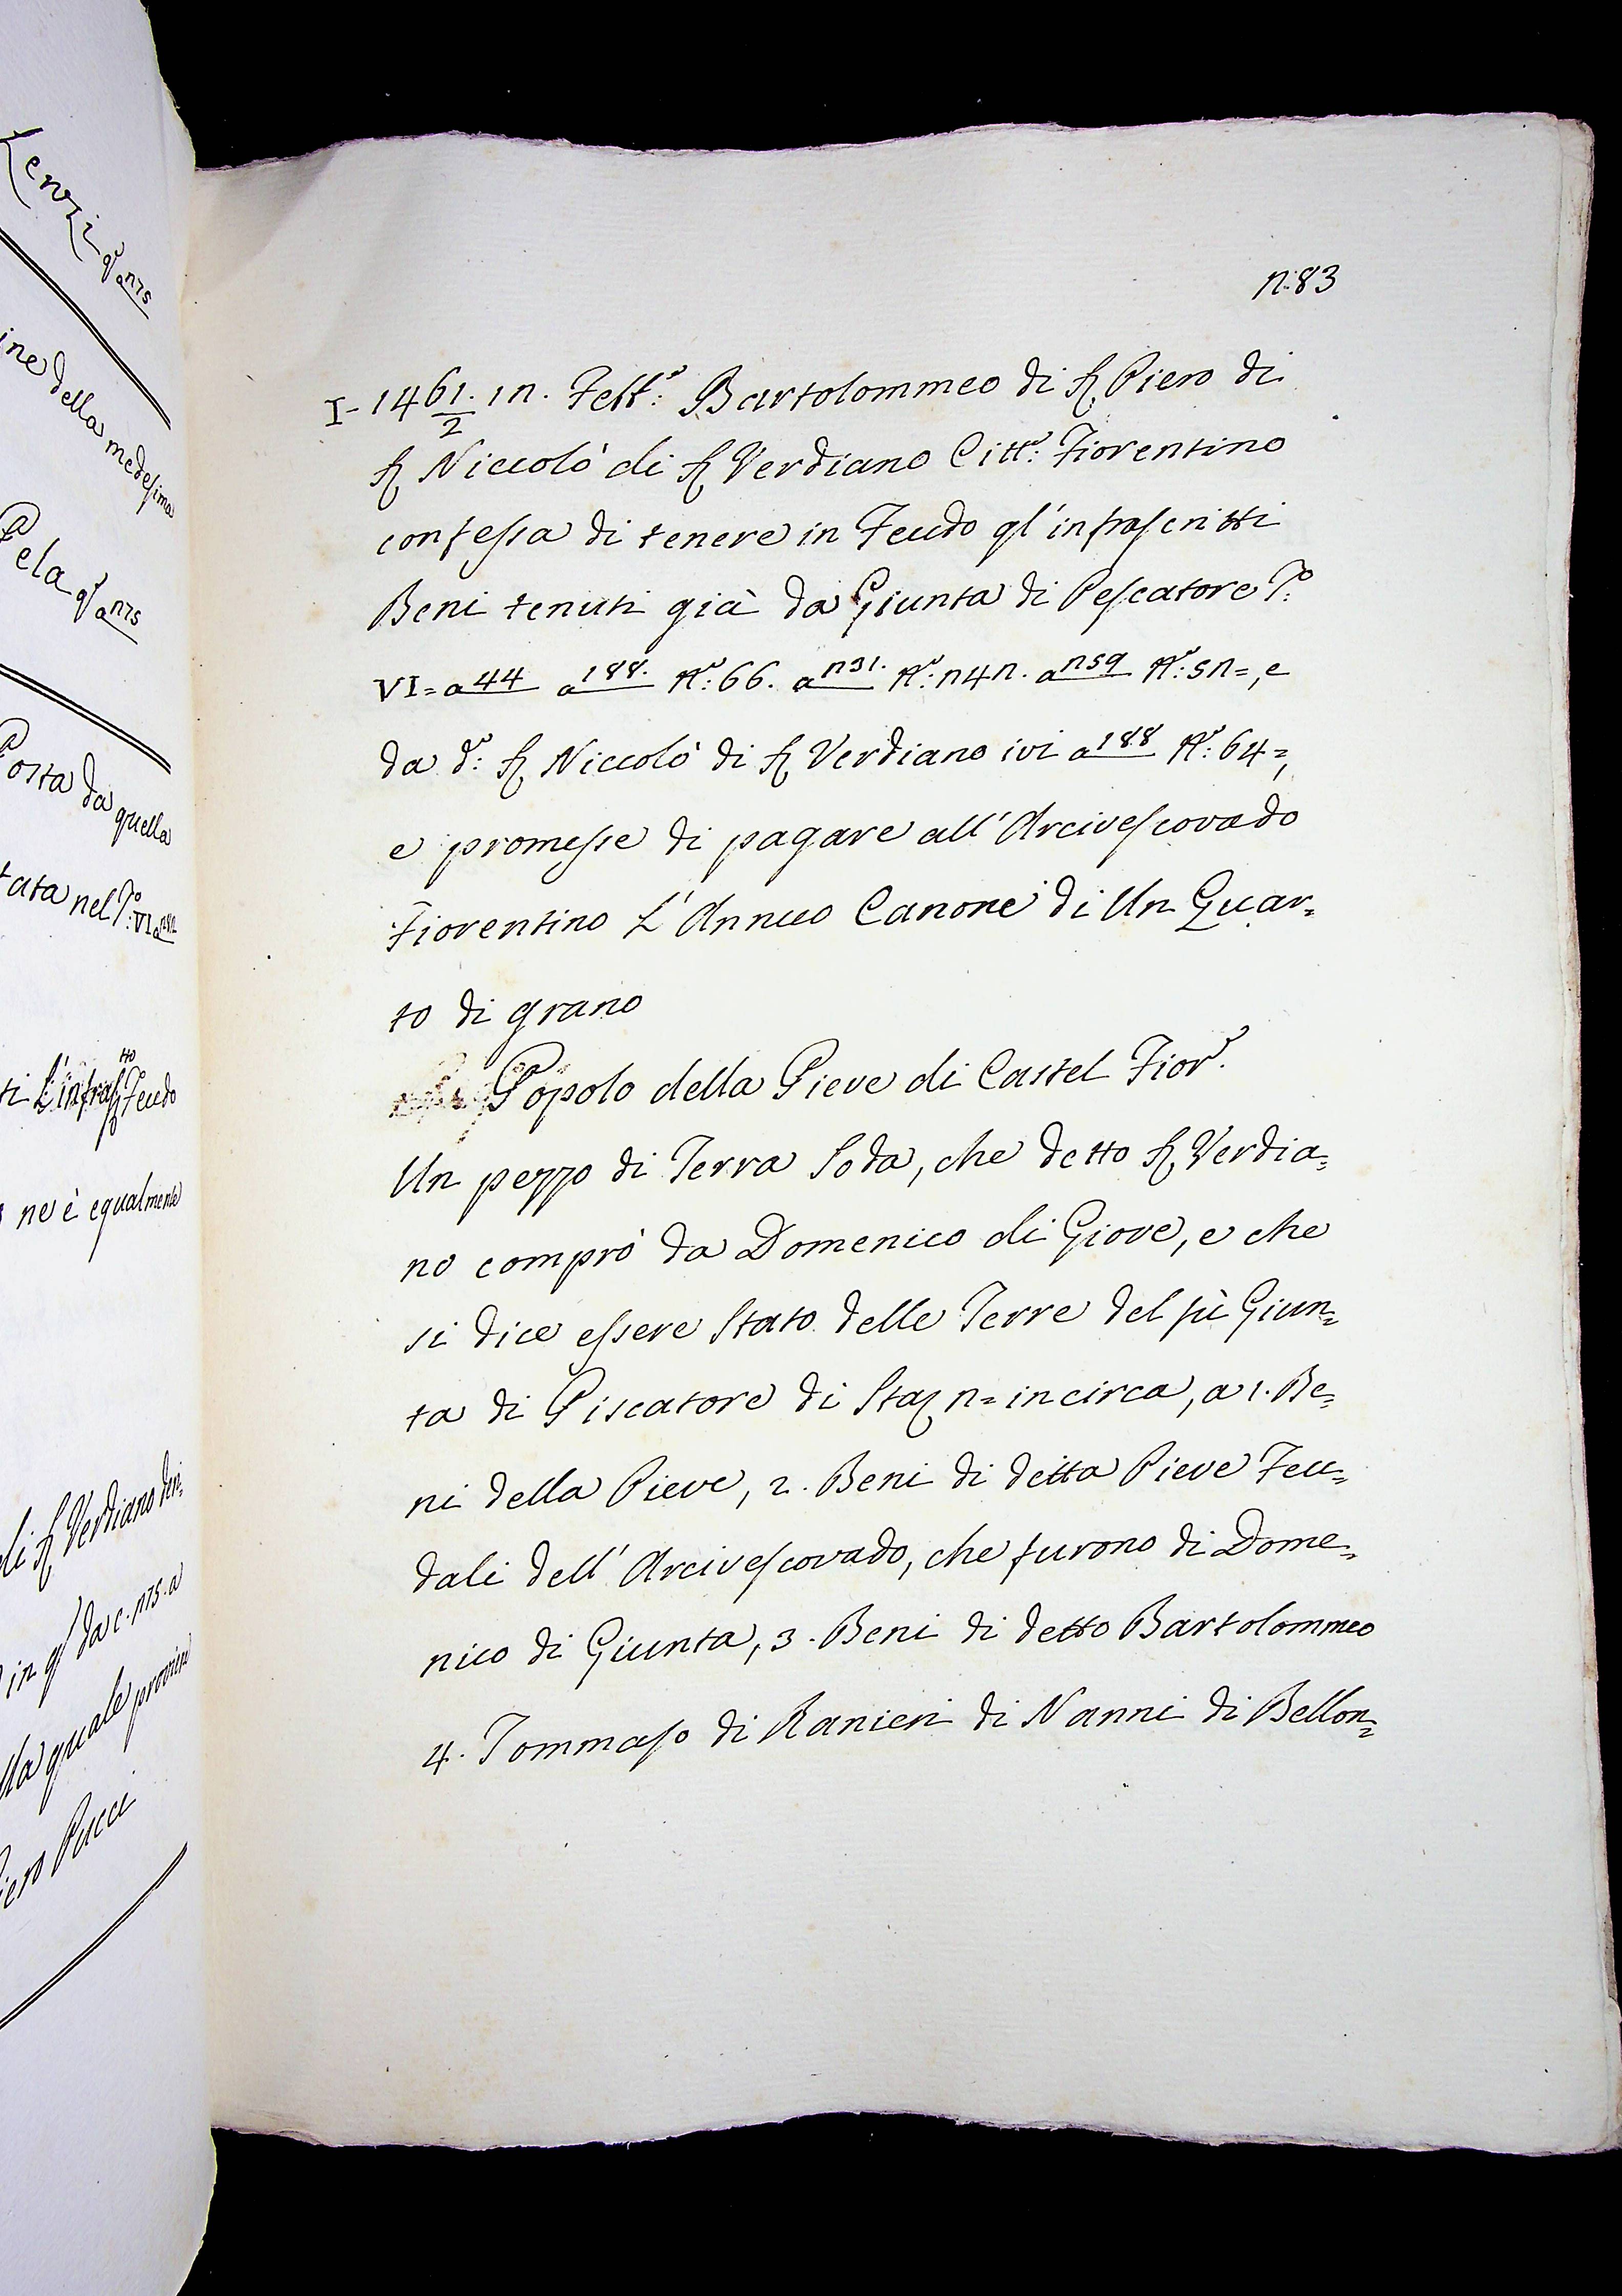 Lenzi q' a 275
ine della medesima
Pela q' a 275
Posta da quella
tata nel T.º VI a
ti L'infrasᵗᵗᵒ Feudo
ne è equalmente
di Sʳ Verdiano
in q' da c. 275. a
lla quale proviene
iero Pucci
283
I- 1461/2. 12. Febb.º Bartolommeo di Sʳ Piero di
Sʳ Niccolò di Sʳ Verdiano Citt.º Fiorentino
confessa di tenere in Feudo gl'infrascritti
Beni tenuti già da Giunta di Pescatore T.º
VI= a 44 a 188. N.º 66. a 231. N.º 242. a 259 N.º 52=, e
da d.º Sʳ Niccolò di Sʳ Verdiano ivi a 188 N.º 64=,
e promesse di pagare all'Arcivescovado
Fiorentino L'Annuo Canone di Un Quar=
to di grano
Popolo della Pieve di Castel Fior.º
Un pezzo di Terra Soda, che detto Sʳ Verdia=
no comprò da Domenico di Giove, e che
si dice essere Stato delle Terre del fù Giun=
ta di Piscatore di Staʳ 2= in circa, a 1. Be=
ni della Pieve, 2. Beni di detta Pieve Feu=
dali dell'Arcivescovado, che furono di Dome=
nico di Giunta, 3. Beni di detto Bartolommeo
4. Tommaso di Ranieri di Nanni di Bellon=